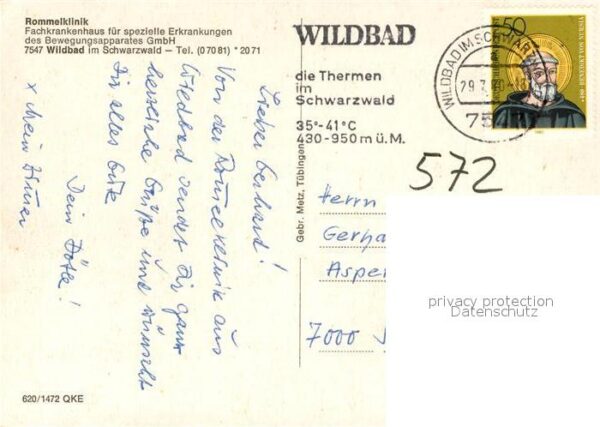 Rommelklinik
Fachkrankenhaus für spezielle Erkrankungen
des Bewegungsapparates GmbH
7547 Wildbad im Schwarzwald — Tel. (07081) *2071
Lieber Gerhard!
Von der Rommelklinik aus
Wildbad sendet Dir ganz
herzliche Grüße und wünscht
Dir alles Gute
Dein
x Mein
620/1472 QKE
Gebr. Metz, Tübingen
WILDBAD
die Thermen
im
Schwarzwald
35°-41°C
430-950 m ü.M.
WILDBAD IM SCHWARZ
29.7.80
75
50
480 BENEDIKT VON NURSIA
572
Herrn
Gerha
Asper
7000
privacy protection
Datenschutz